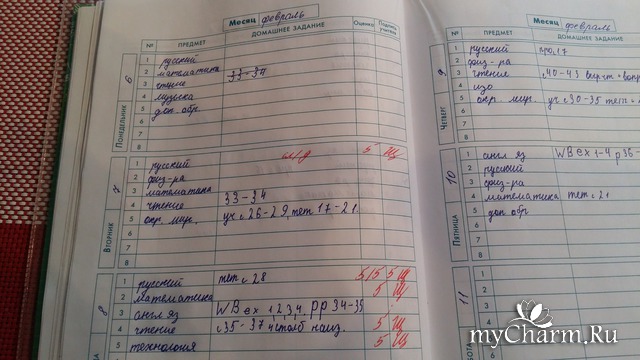 Месяц февраль
№ ПРЕДМЕТ ДОМАШНЕЕ ЗАДАНИЕ Оценка Подпись учителя
ПОНЕДЕЛЬНИК 6
1 русский
2 математика 33-34
3 чтение
4 музыка
5 доп. обр.
6
7
8
ВТОРНИК 7
1 русский 5
2 физ-ра
3 математика
4 чтение 33-34
5 окр. мир. уч с 26-29, тет 17-21.
6
7
8
8
1 русский тет с 28 5/5 5
2 математика 5
3 англ яз WB ex 1234, pp 34-35
4 чтение с35-37 5
5 технология 5
Месяц февраль
№ ПРЕДМЕТ ДОМАШНЕЕ ЗАДАНИЕ
ЧЕТВЕРГ 9
1 русский
2 физ-ра
3 чтение с40-43
4 изо
5 окр. мир. уч с30-35 тет
6
7
8
ПЯТНИЦА 10
1 англ яз WB ex 1-4 p 35-
2 русский
3 физ-ра
4 математика тет с 21
5 доп обр
6
7
8
11
1
2
3
4
5
myCharm.Ru